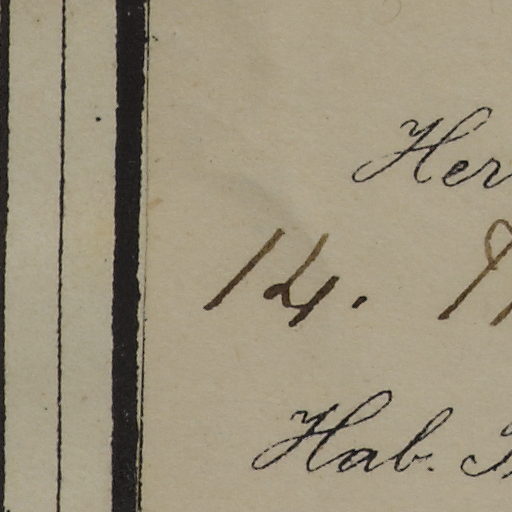 Her
14.
Hab.